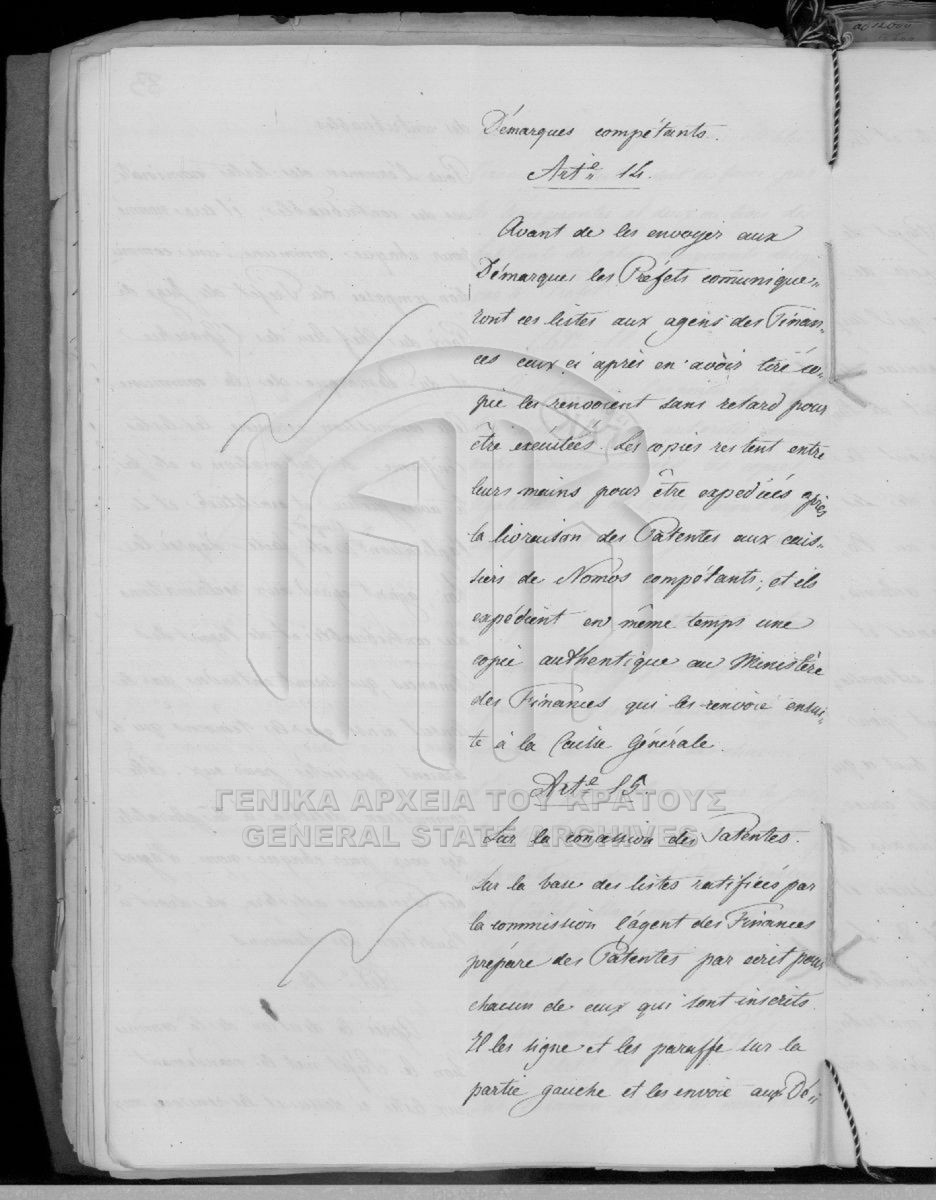 Démarques compétants.
Art.e 14.
Avant de les envoyer aux
Démarques les Préfets communique„
ront ces listes aux agens des Finan„
ces ceux ci après en avoir tiré co„
pie les renvoient sans retard pour
être exécutées. Les copies restent entre
leurs mains pour être expediées après
la livraison des Patentes aux cais„
siers de Nomos compétants; et ils
expédient en même temps une
copie authentique au Ministère
des Finances qui les renvoie ensui„
te à la Caisse Générale.
Art.e 15.
ΓΕΝΙΚΑ ΑΡΧΕΙΑ ΤΟΥ ΚΡΑΤΟΥΣ
GENERAL STATE ARCHIVES
Sur la concession des Patentes.
Sur la base des listes ratifiées par
la commission l'agent des Finances
prépare des Patentes par ecrit pour
chacun de ceux qui sont inscrits.
Il les signe et les paraffe sur la
partie gauche et les envoie aux Dé„